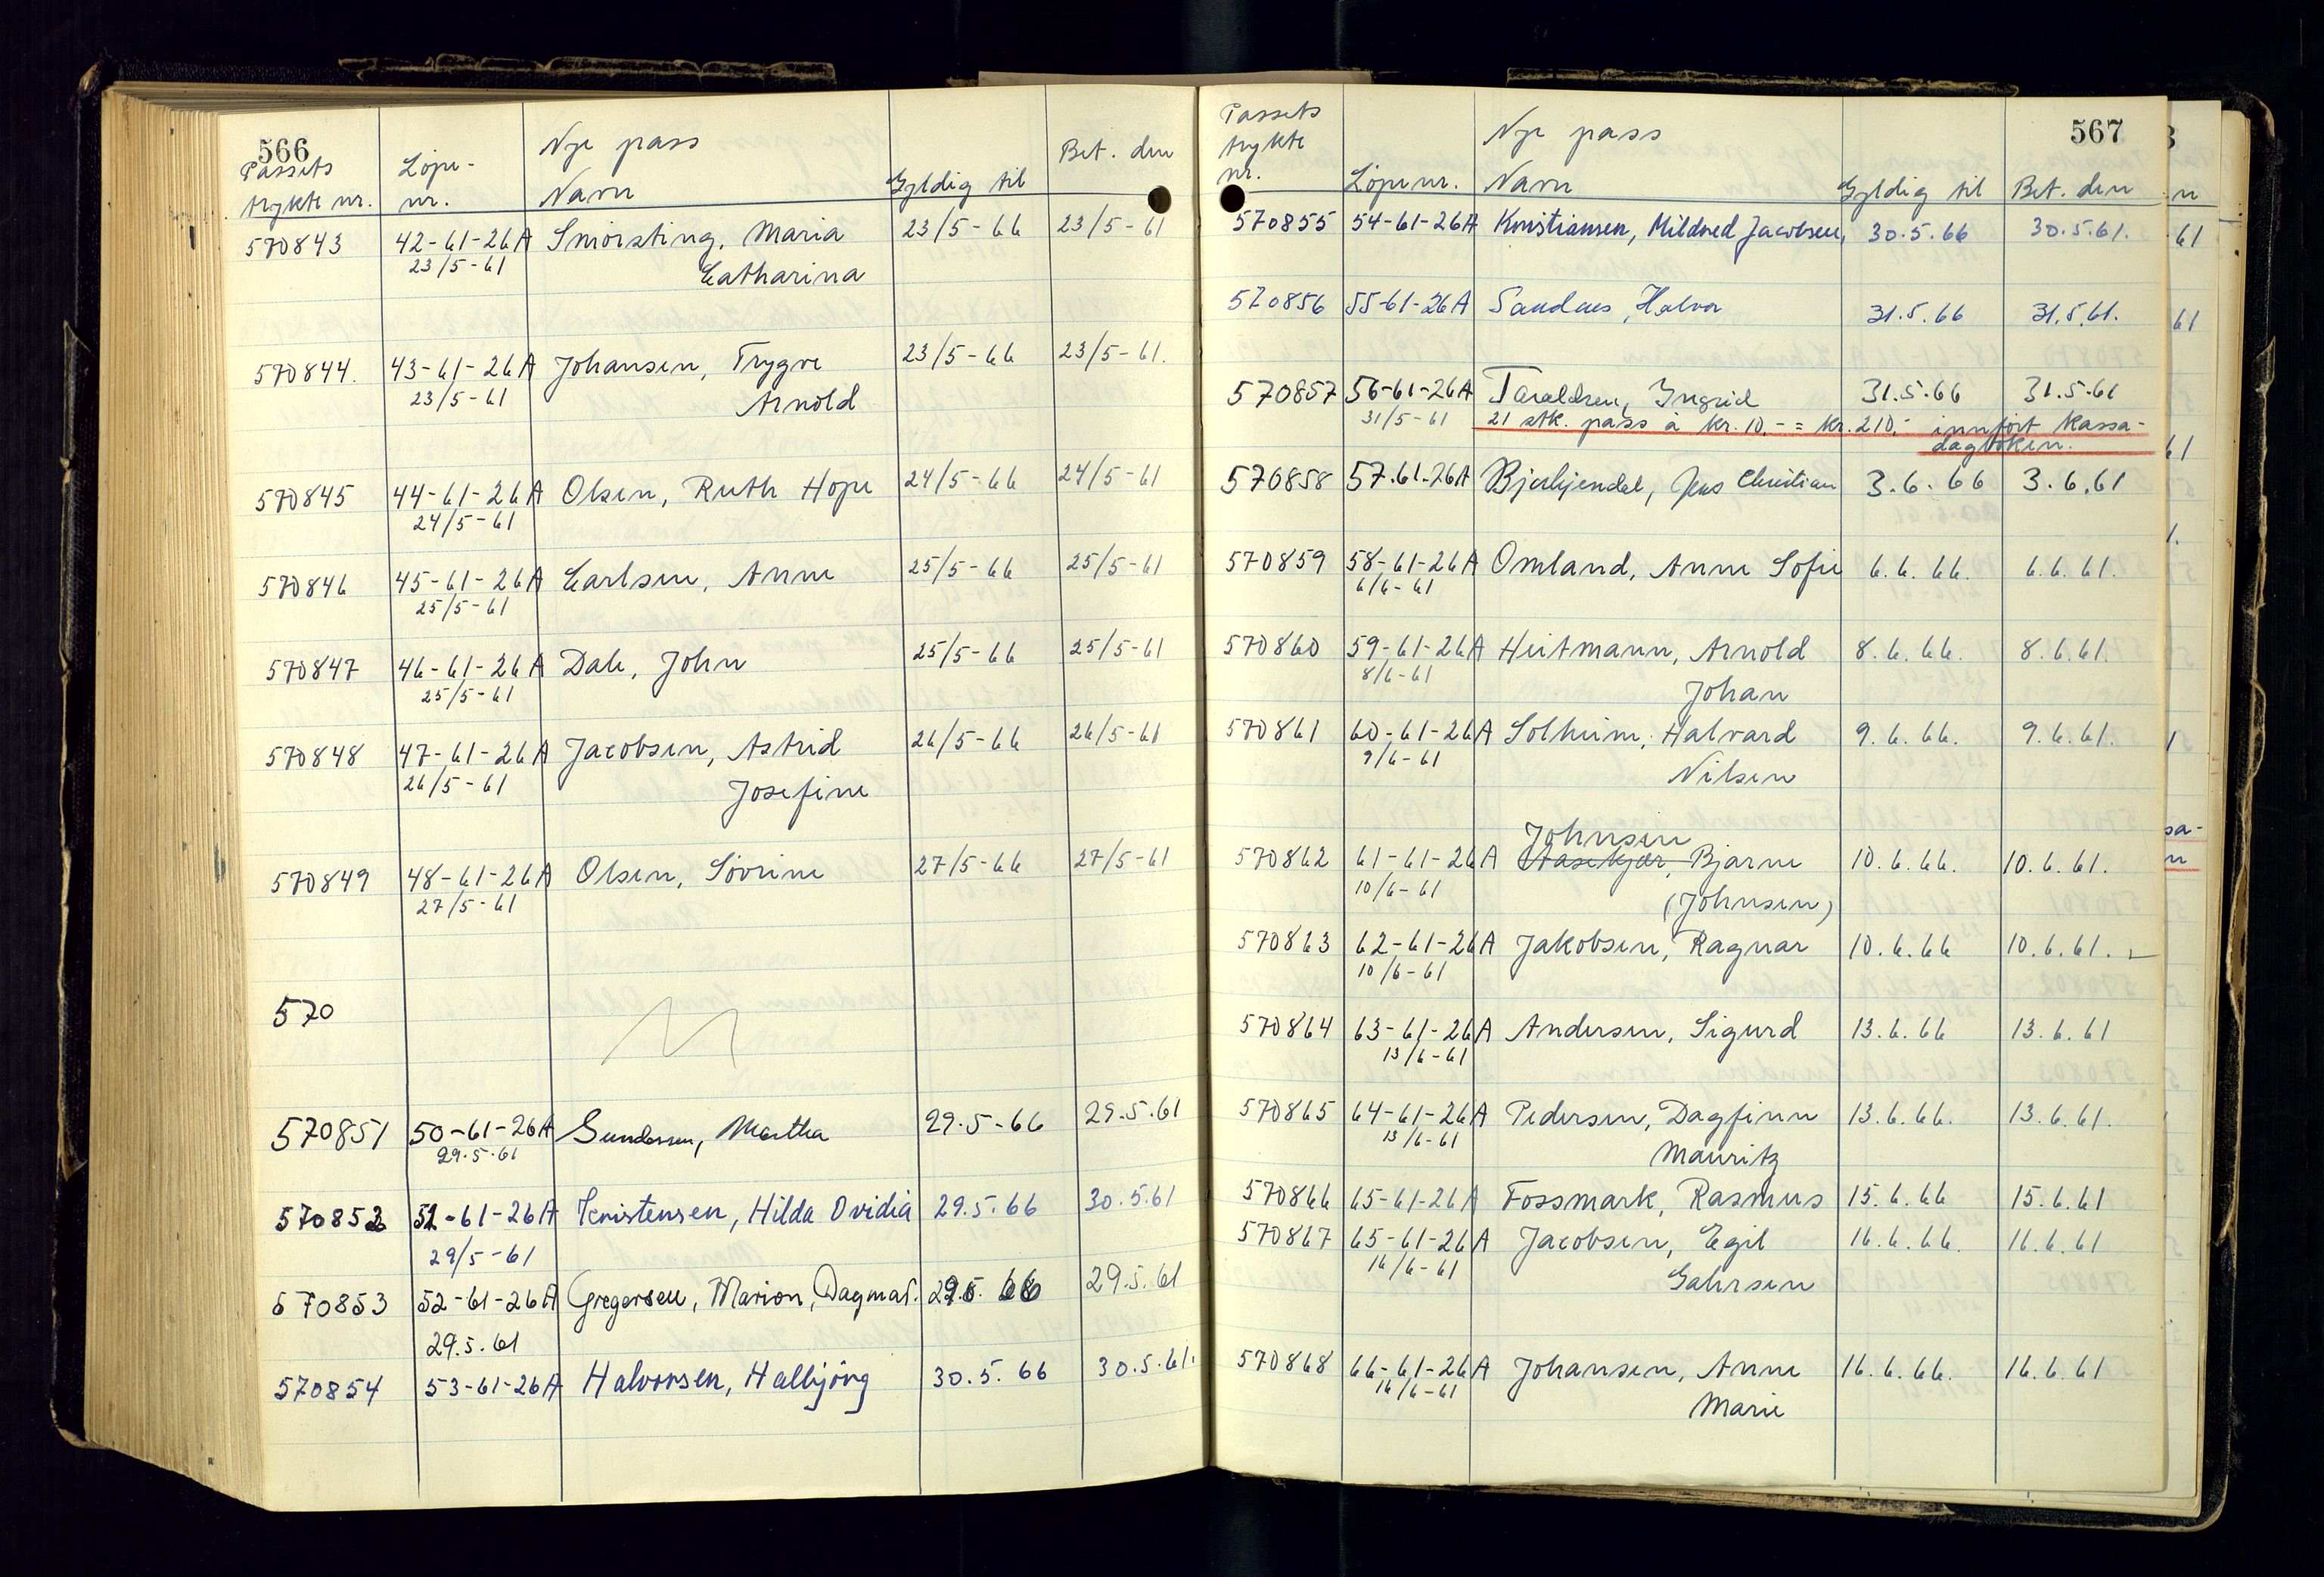 566
Nye pass
Passets trykte nr. Løpe-nr. Navn Gyldig til Bet. den
570843 42-61-26A Smørsting, Maria 23/5-66 23/5-61
23/5-61 Catharina
570844. 43-61-26A Johansen, Trygve 23/5-66 23/5-61.
23/5-61 Arnold
570845 44-61-26A Olsen, Ruth Hope 24/5-66 24/5-61
24/5-61
570846 45-61-26A Carlsen, Anne 25/5-66 25/5-61
25/5-61
570847 46-61-26A Dale, John 25/5-66 25/5-61
25/5-61
570848 47-61-26A Jacobsen, Astrid 26/5-66 26/5-61
26/5-61 Josefine
570849 48-61-26A Olsen, Søvrine 27/5-66 27/5-61
27/5-61
570
570851 50-61-26A Gundersen, Martha 29.5-66 29.5.61
29.5.61
570852 51-61-26A Kristensen, Hilda Ovidia 29.5.66 30.5.61
29/5-61
570853 52-61-26A Gregersen, Marion, Dagmar. 29.5.66 29.5.61
29.5.61
570854 53-61-26A Halvorsen, Halbjörg 30.5.66 30.5.61.
567
Nye pass
Passets trykte nr. Løpenr. Navn Gyldig til Bet. den
570855 54-61-26A Kristiansen, Mildred Jacobsen, 30.5.66 30.5.61.
570856 55-61-26A Sandnes, Halvor 31.5.66 31.5.61.
570857 56-61-26A Taraldsen, Ingrid 31.5.66 31.5.61
31/5-61 21 stk. pass à kr. 10.- = kr. 210.- innført kassa-
dagboken.
570858 57.61-26A Christian 3.6.66 3.6.61
570859 58-61-26A Omland, Anne Sofie 6.6.66. 6.6.61.
6/6-61
570860 59-61-26A Heitmann, Arnold 8.6.66. 8.6.61.
8/6-61 Johan
570861 60-61-26A Solheim, Halvard 9.6.66. 9.6.61.
9/6-61 Nilsen
Johnsen
570862 61-61-26A Aasekjær, Bjarne 10.6.66. 10.6.61.
10/6-61 (Johnsen)
570863 62-61-26A Jakobsen, Ragnar 10.6.66 10.6.61.
10/6-61
570864 63-61-26A Andersen, Sigurd 13.6.66 13.6.61
13/6-61
570865 64-61-26A Pedersen, Dagfinn 13.6.66. 13.6.61.
13/6-61 Mauritz
570866 65-61-26A Fossmark, Rasmus 15.6.66 15.6.61
570867 65-61-26A Jacobsen, Egil 16.6.66. 16.6.61
16/6-61 Gahrsen
570868 66-61-26A Johansen, Anne 16.6.66. 16.6.61
16/6-61 Marie